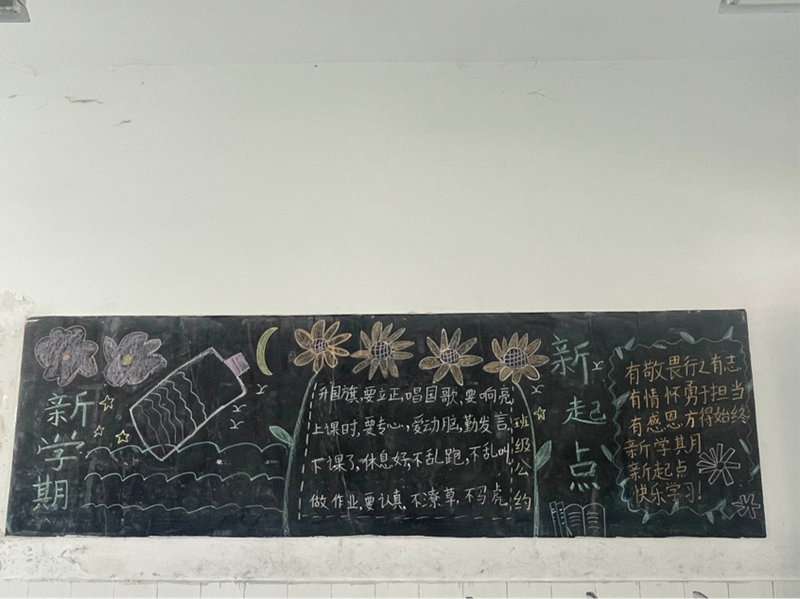 新学期
升国旗,要立正,唱国歌,要响亮
上课时,要专心,爱动脑,勤发言,
下课了,休息好,不乱跑,不乱叫,
做作业,要认真,不潦草,不马虎,
班级公约
新起点
有敬畏行之有志
有情怀勇于担当
有感恩方得始终
新学其月
新起点
快乐学习!